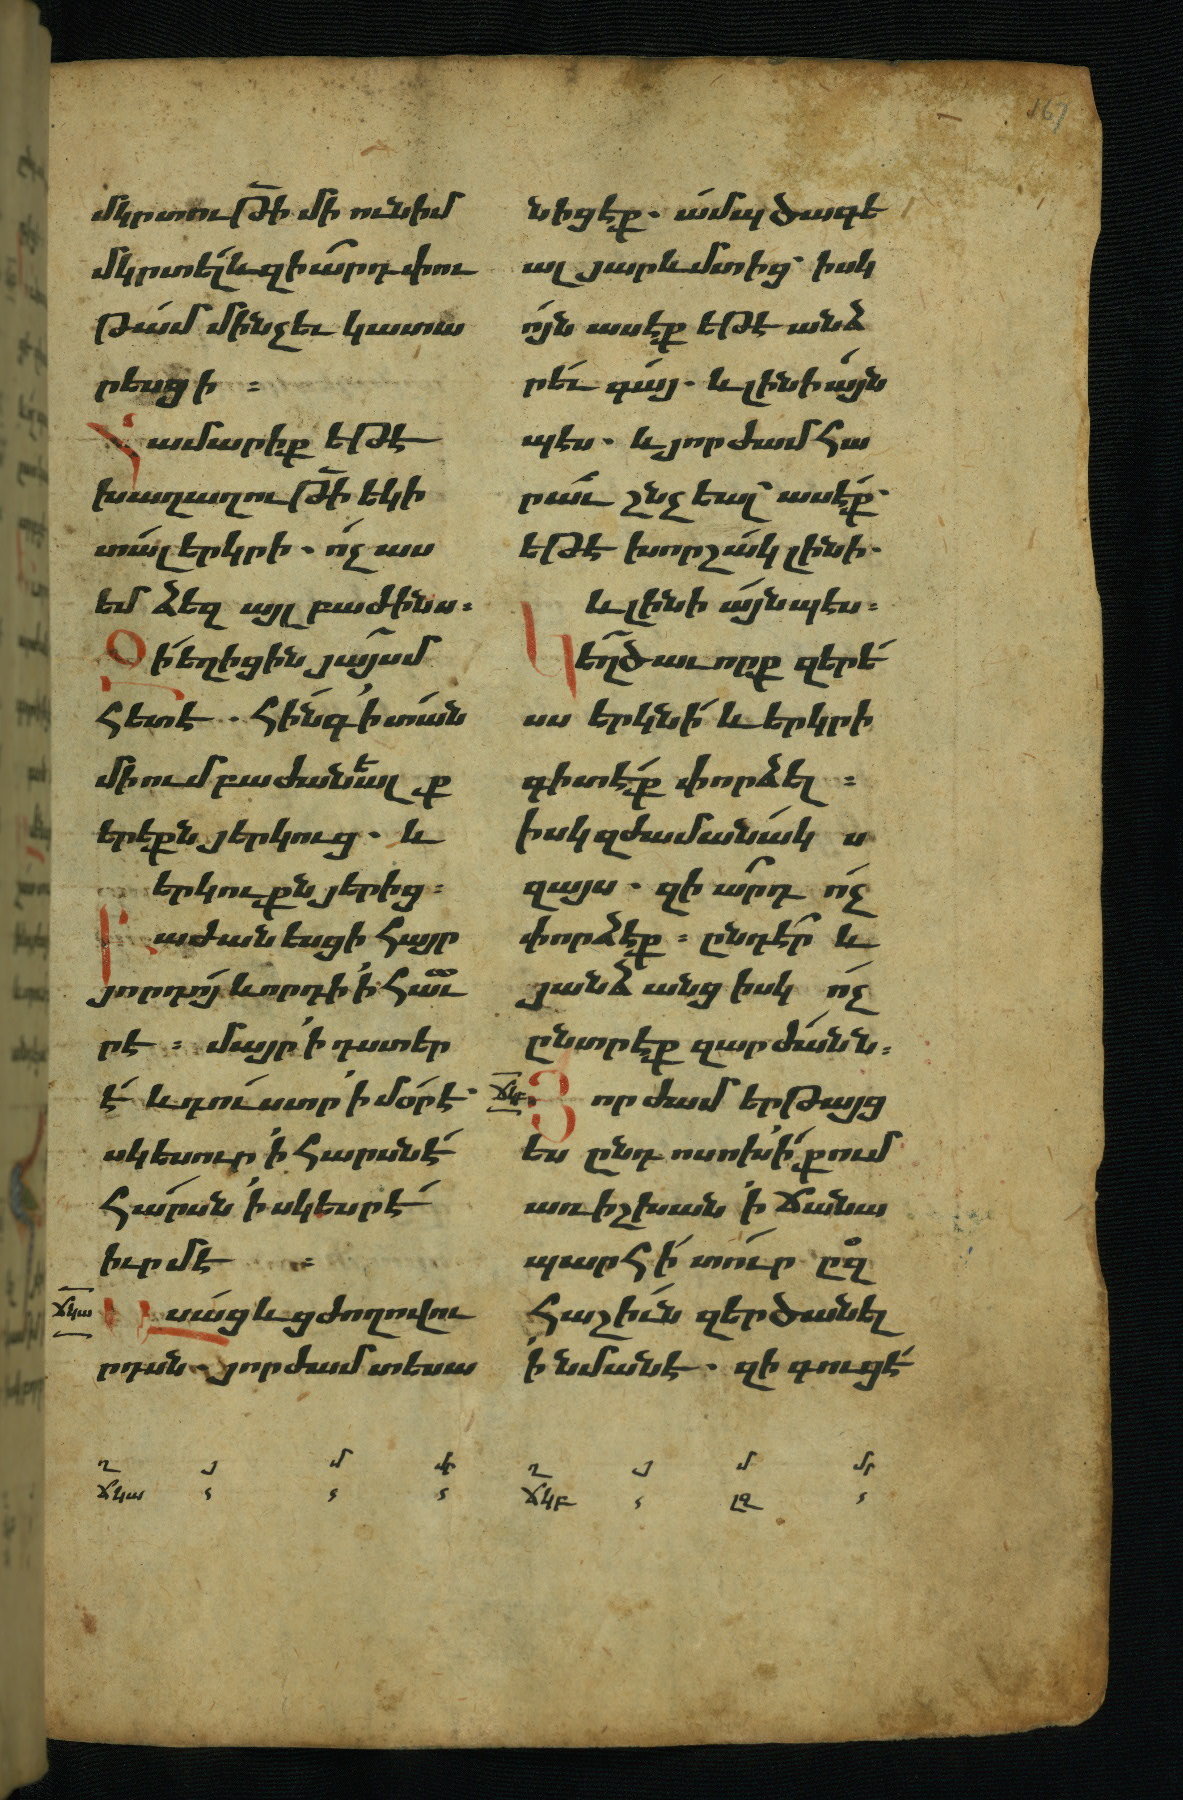 167
մկրտութի մի ունիմ
մկրտել և զիարդ փու
թամ մինչեւ կատա
րեսցի ։
Համարիք եթէ
խաղաղութի եկի
տալ երկրի . ոչ աս
եմ ձեզ այլ բաժինս ։
Զի եղիցին յայսմ
հետէ . հինգ ի տան
միում բաժանեալ ք
երեքն յերկուց . և
երկուքն յերից ։
Բաժանեսցի հայր
յորդոյ և որդի ի հաւ
րէ ։ մայր ի դստեր
է և դուստր ի մօրէ .
սկեսուր ի հարսնէ
հարսն ի սկեսրէ
իւրմէ ։
ճկա Ասաց և ցժողովու
րդսն . յորժամ տեսա
նիցէք . ամպ ծագե
ալ յարևմտից իսկ
ոյն ասէք եթէ անձ
րեւ գայ . և լինի այն
պէս . և յորժամ հա
րաւ շնչեալ ասէք .
եթէ խորշակ լինի .
և լինի այնպէս ։
Կեղծաւորք զերե
սս երկնի և երկրի
գիտէք փորձել ։
իսկ զժամանակ ս
զայս . զի արդ ոչ
փորձէք ։ ընդեր և
յանձանց իսկ ոչ
ընտրէք զարժանն ։
ճկբ Յորժամ երթայց
ես ընդ ոսոխի քում
առ իշխան ի ճանա
պարհի տուր ըզ
հաշիւն զերծանել
ի նմանէ . զի գուցէ
ղ յ մ մր
ճկա
ղ յ մ մր
ճկբ լզ